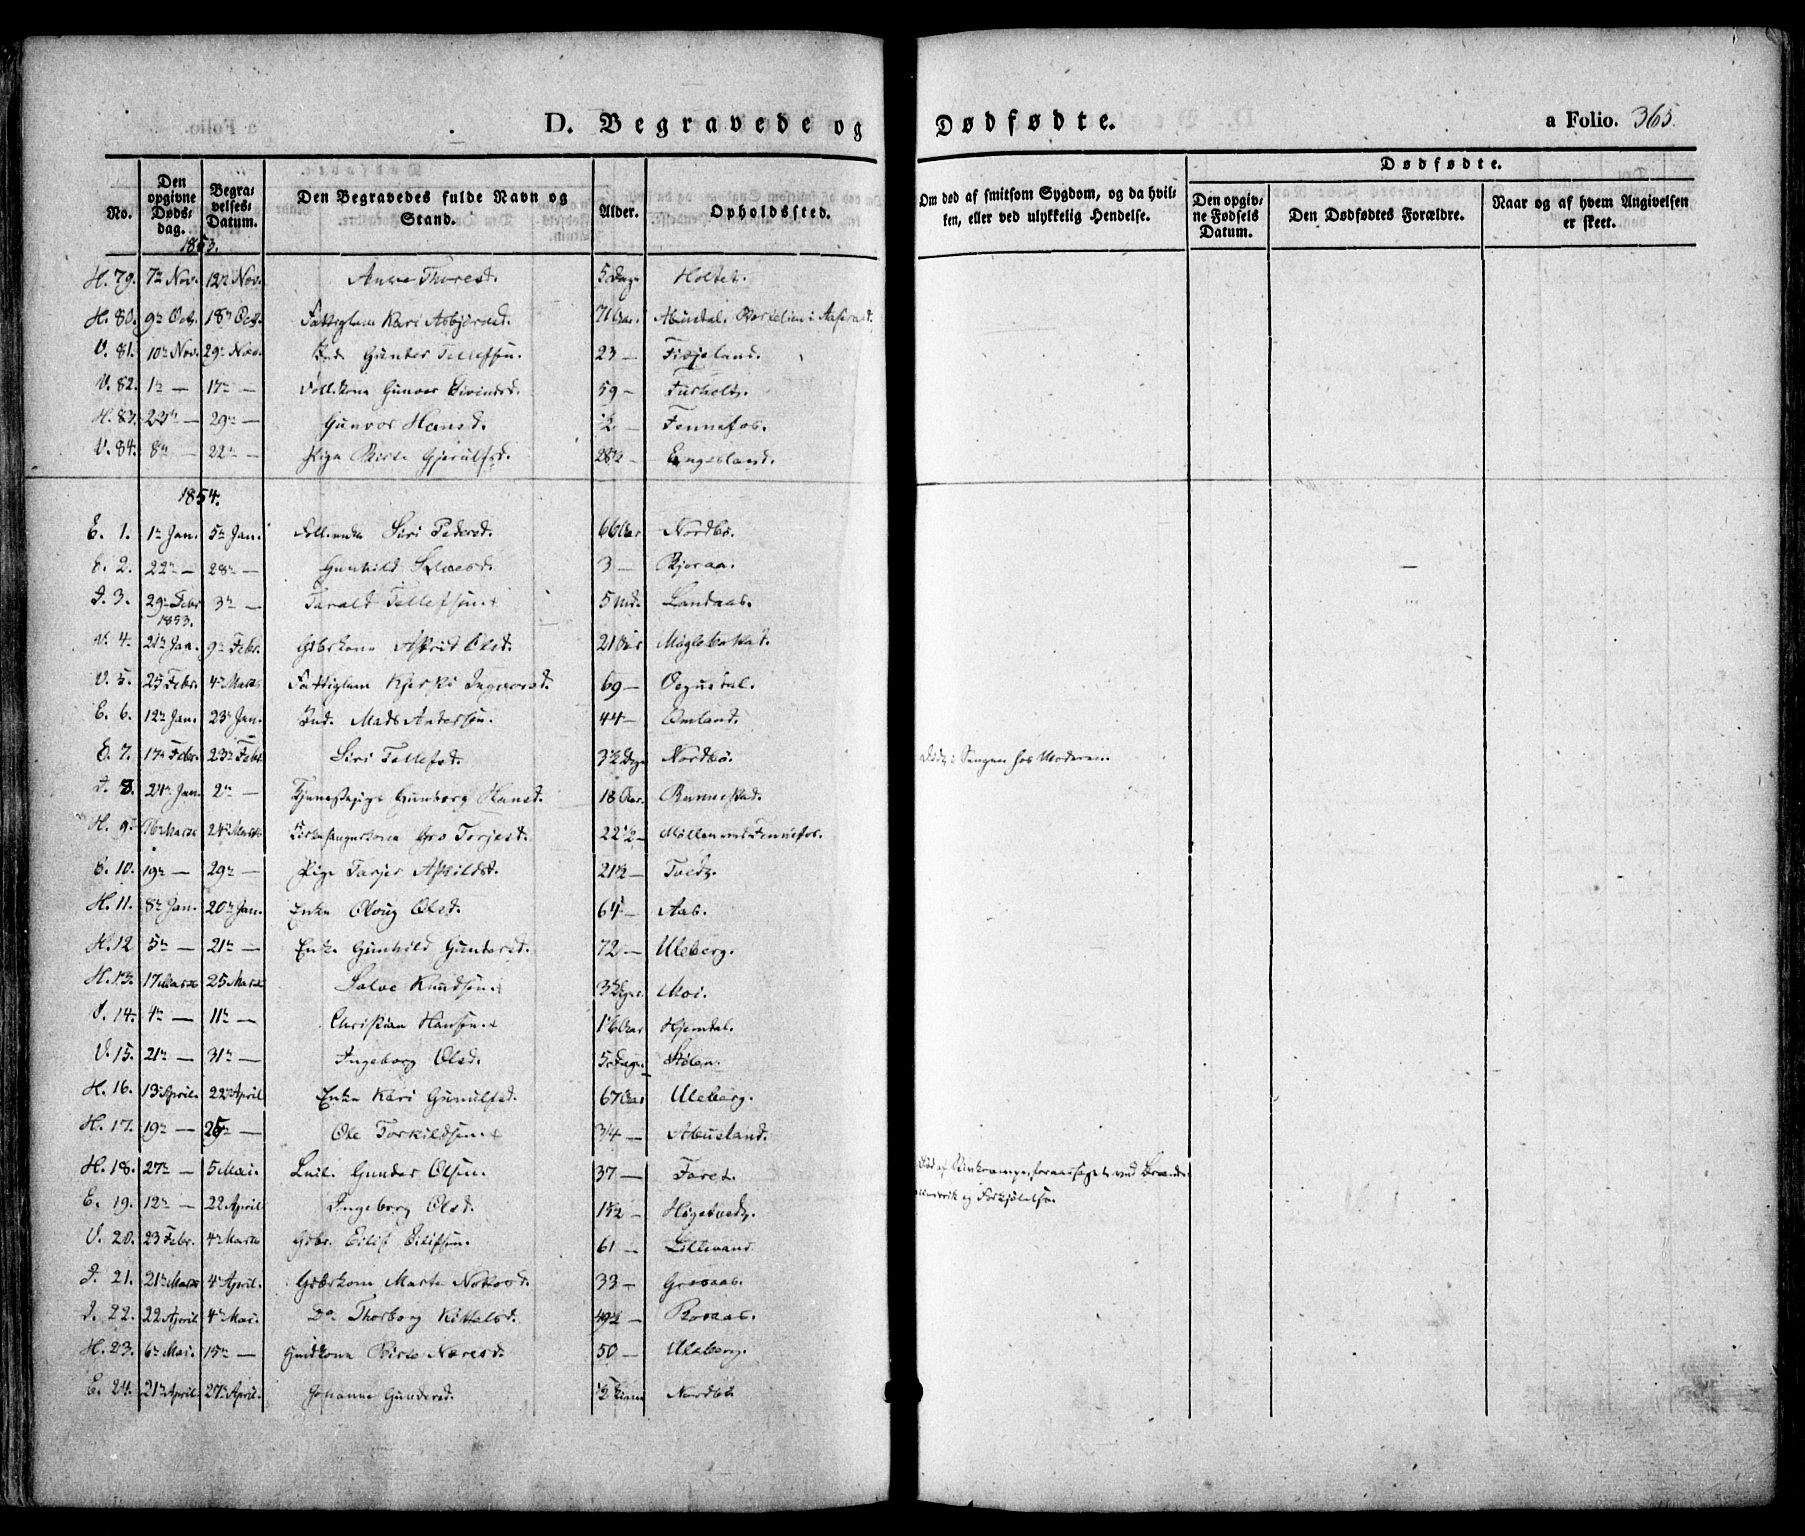 D. Begravede og Dødfødte. a Folio. 365.
No. Den opgivne Dødsdag. Begravelses Datum. Den Begravedes fulde Navn og Stand. Alder. Opholdssted. Om død af smitsom Sygdom, og da hvilken, eller ved ulykkelig Hendelse. Dødfødte. Den opgivne Fødsels Datum. Den Dødfødtes Forældre. Naar og af hvem Angivelsen er skeet.
1853.
H. 79. 7de Nov. 12te Nov. Anne Thoresd. 5 Dage Holtet.
H. 80. 9de Oct. 18de Oct. Fattiglem Kari Asbjörnsd. 71 Aar. Abusdal.
V. 81. 10de Nov. 29de Nov. Gunder Tellefsen. 23 — Fixjeland.
V. 82. 1te — 17de — Gunvor Eivindsd. 59 — Furholt.
H. 83. — 29de — Gunvor Hansd. ½ — Fennefos.
V. 84. 8de — 22de — Pige Birte Gjerulfsd. 28½ — Engesland.
1854.
E. 1. 1te Jan. 5te Jan. Siri Pedersd. 66 Aar Nordbö.
E. 2. 22de — 28de — Gunhild 3 — Bjoraa.
I. 3. 29de Febr 1853. 3de — Tarald Tellefsen. 5 Md. Landaas.
V. 4. 21de Jan. 9de Febr. Gbrkone Askrid Olsd. 21 Aar
V. 5. 25 Febr. 4de Marts Fattiglem Ingvorsd. 69 —
E. 6. 12te Jan. 23de Jan. Ind. Mads Andersen. 44 — Omland.
E. 7. 17de Febr. 23de Febr. Siri Tellefsd. 3½ Dage Nordbö. Död i Sengen hos Moderen.
I. 8. 24de Jan. 2de — Tjenestepige Gunborg Hansd. 18 Aar. Rannestad.
H. 9. 16de Marts 24de Marts Kirkesangerkone Torjesd. 22½ — Möllen ved Fennefos.
E. 10. 19de — 29de — Pige Tarjer Askildsd. 21½ — Tvedt.
H. 11. 8de Jan. 20de Jan. Enke Oloug Olsd. 64 — Aas.
H. 12. 5te — 21de — Enke Gunhild Gundersd. 72 — Uleberg.
H. 13. 17 Marts 25 Marts Salve Knudsen. Moi.
I. 14. 4de — 11te — Christian Hansen. Aar Hjemdal.
V. 15. 21de — 31te — Ingeborg Olsd. 5 Dage Stölen.
H. 16. 13 April. 22de April Enke Kari Gunulfsd. 67 Aar Uleberg.
H. 17. 19de — 25 — Ole Torkildsen. 34 — Abusland.
H. 18. 27de — 5 Mai. Gunder Olsen. 37 — Faret. Död af
E. 19. 12te — 22 April Ingeborg Olsd. 1½ — og Forkjölelse.
V. 20. 23 Febr. 4de Marts Gbr. Eilif Eilifsen. 61 — Lillevand
I. 21. 21de Marts 4de April. Gbrkone Marte Notlovsd. 33 — Grosaas.
I. 22. 22 April 4de Mai. Do Thorborg Kittelsd. 49½ — Rosaas.
H. 23. 6te Mai. 15de — Birte Næresd. 50 — Uleberg.
E. 24. 21de April. 27de April. Johanne Gundersd. ½ Nordbö.